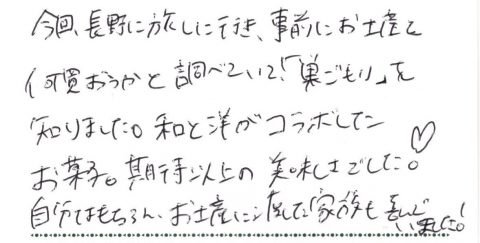 今回、長野に旅しに行き、事前にお土産を
何買おうかと調べていて!「巣ごもり」を
知りました。和と洋がコラボした
お菓子。期待以上の美味しさでした。♡
自分はもちろん、お土産に渡した家族も喜んで
いました!